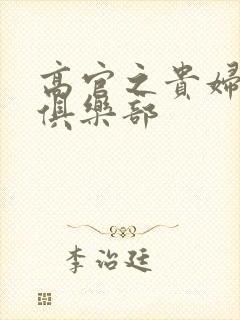 高官之貴婦
俱樂部
李治廷